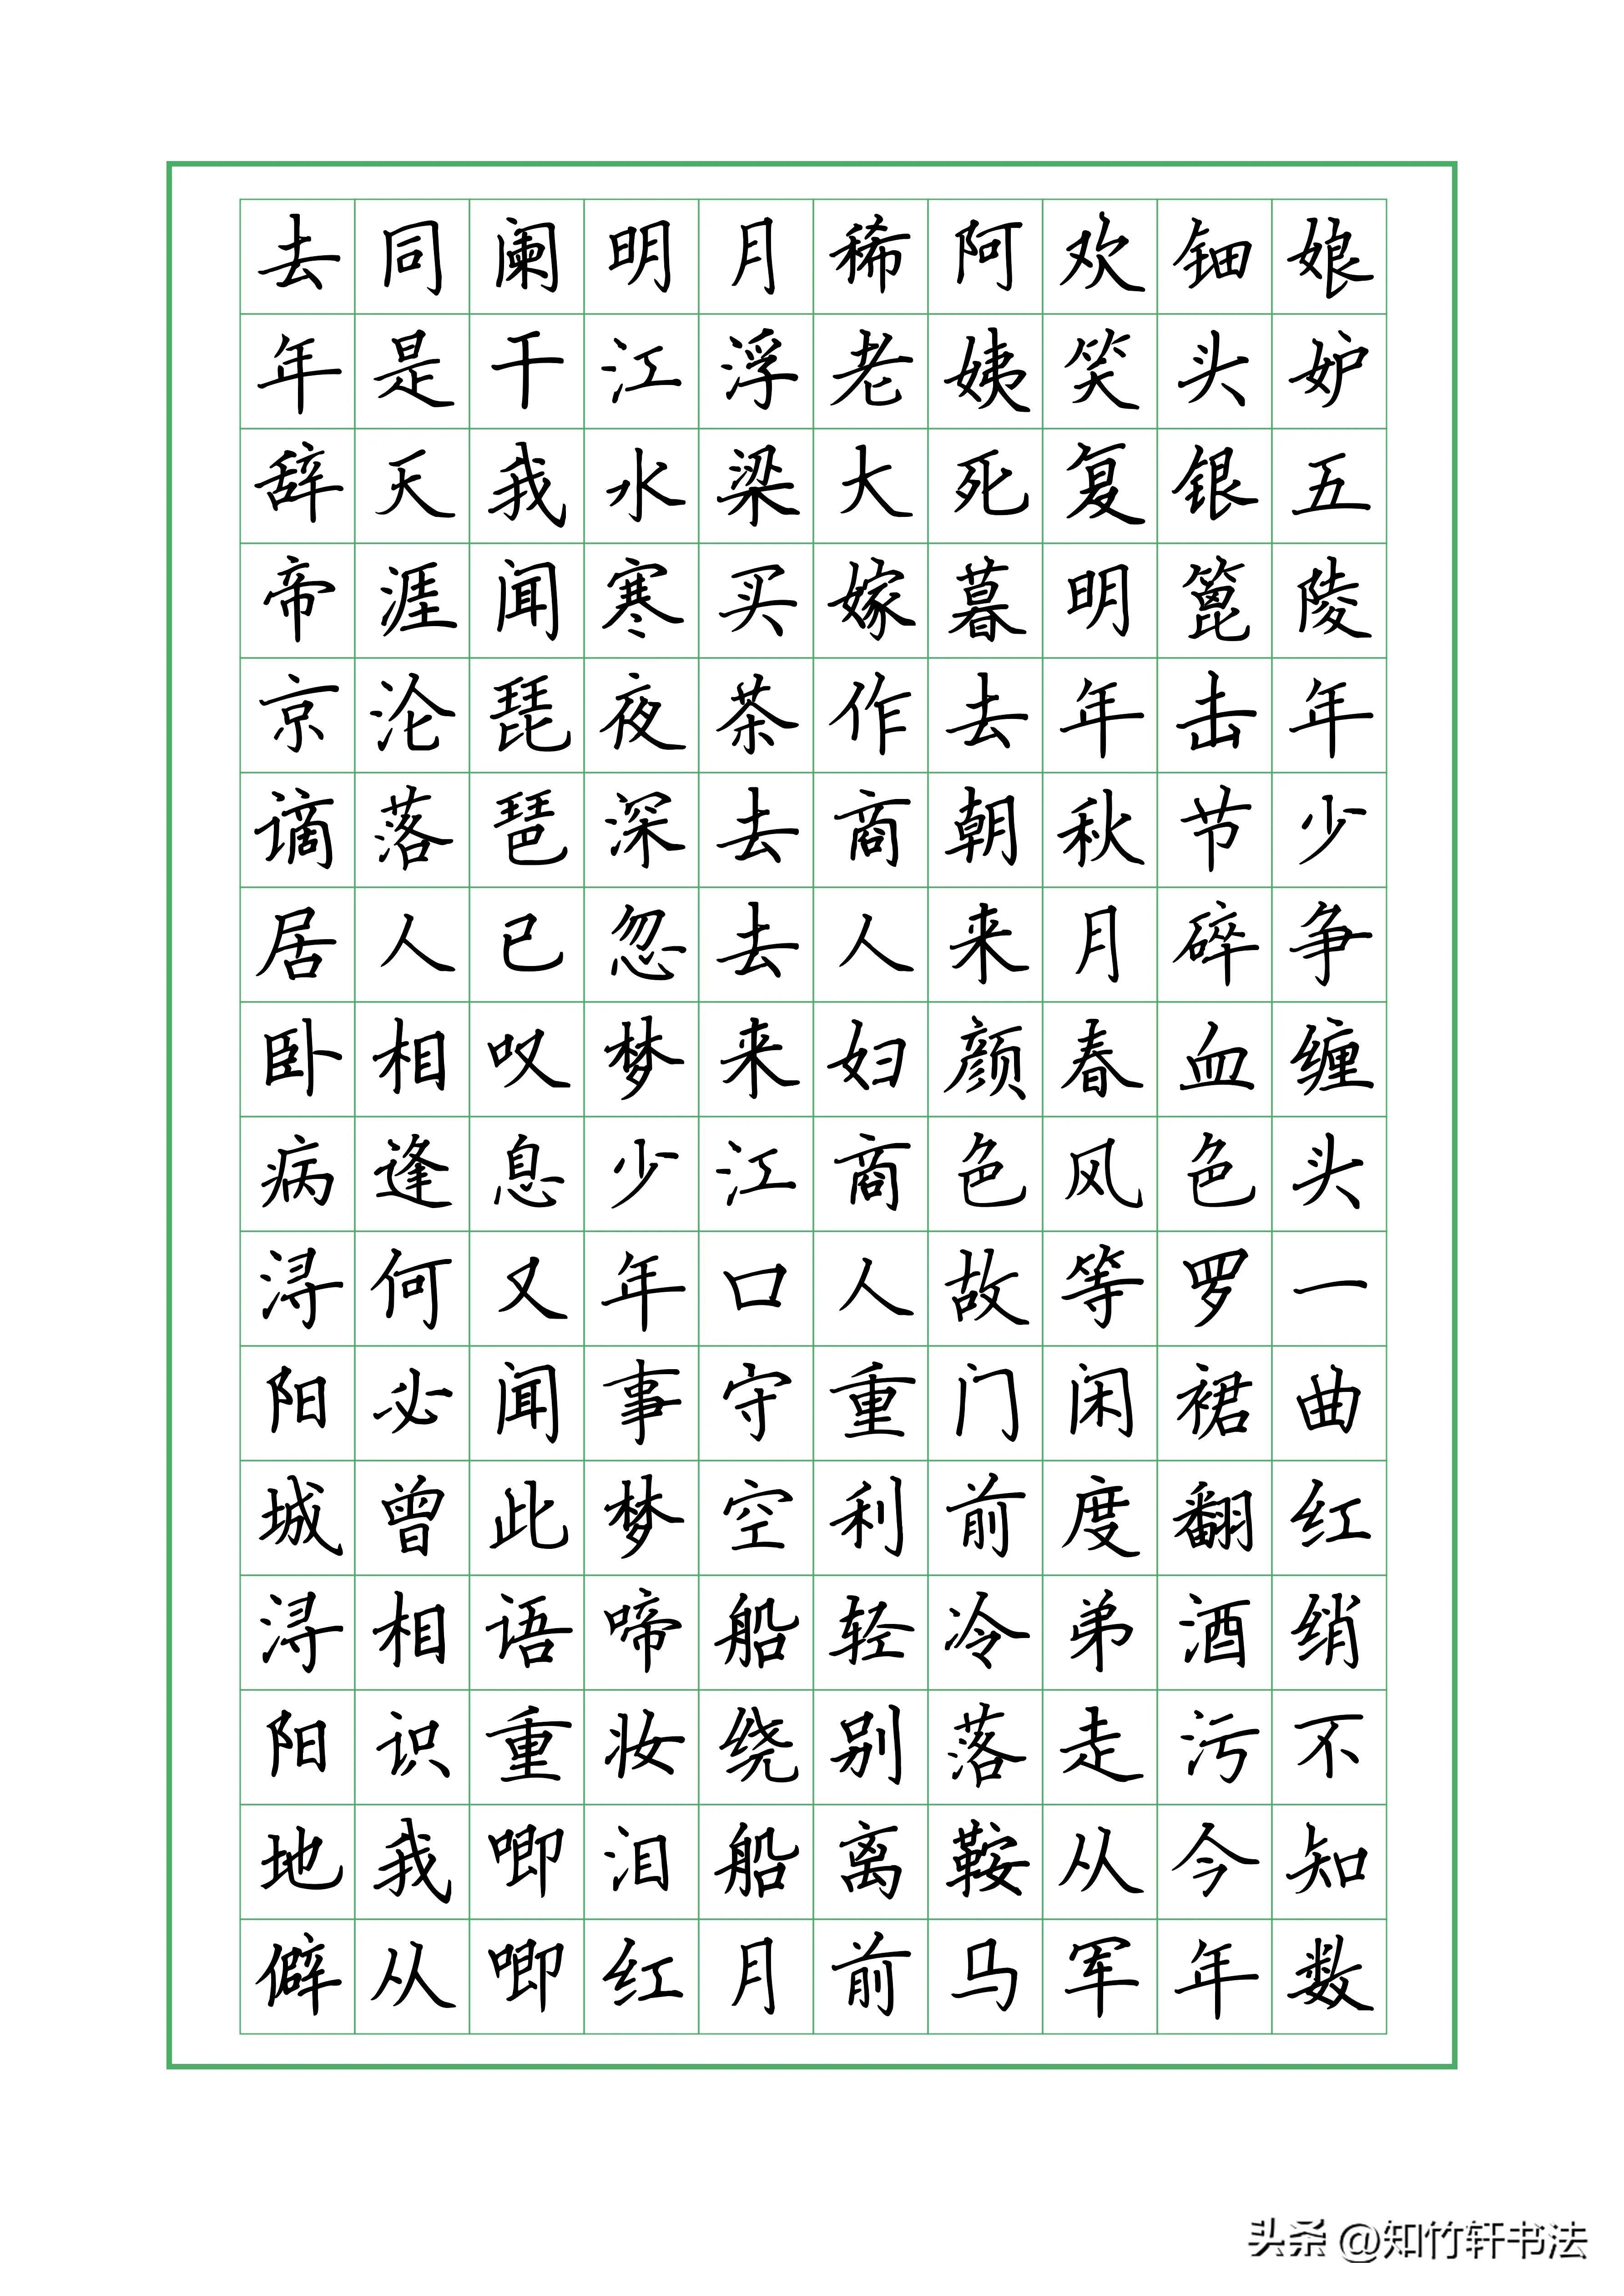 娘妒五陵年少争缠头一曲红绡不知数
钿头银篦击节碎血色罗裙翻酒污今年
欢笑复明年秋月春风等闲度弟走从军
阿姨死暮去朝来颜色故门前冷落鞍马
稀老大嫁作商人妇商人重利轻别离前
月浮梁买茶去去来江口守空船绕船月
明江水寒夜深忽梦少年事梦啼妆泪红
阑干我闻琵琶已叹息又闻此语重唧唧
同是天涯沦落人相逢何必曾相识我从
去年辞帝京谪居卧病浔阳城浔阳地僻
头条 @知竹轩书法